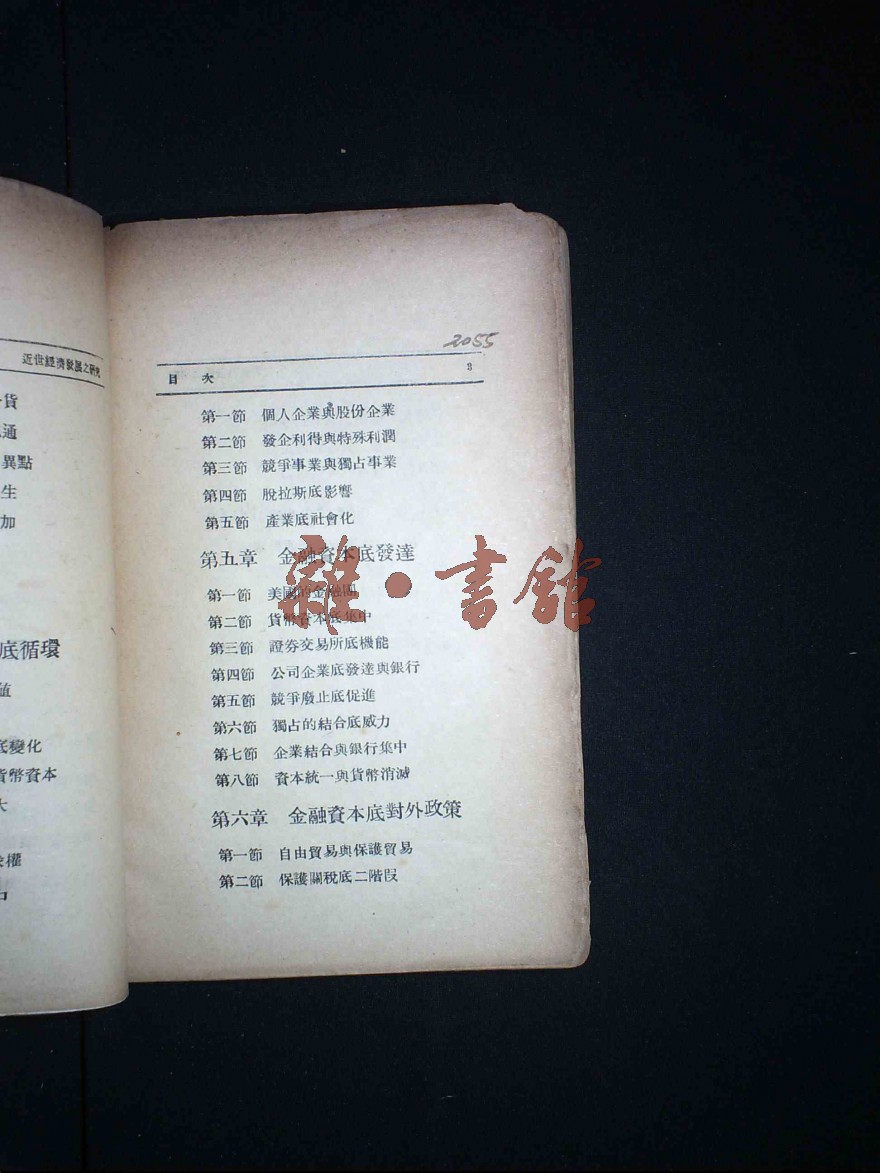 近世經濟發展之研究
貨
通
異點
生
加
底循環
值
底變化
貨幣資本
大
權
2055
目 次 3
第一節 個人企業與股份企業
第二節 發企利得與特殊利潤
第三節 競爭事業與獨占事業
第四節 脫拉斯底影響
第五節 產業底社會化
第五章 金融資本底發達
第一節 美國的金融團
第二節 貨幣資本底集中
第三節 證券交易所底機能
第四節 公司企業底發達與銀行
第五節 競爭廢止底促進
第六節 獨占的結合底威力
第七節 企業結合與銀行集中
第八節 資本統一與貨幣消滅
第六章 金融資本底對外政策
第一節 自由貿易與保護貿易
第二節 保護關稅底二階段
雜·書館